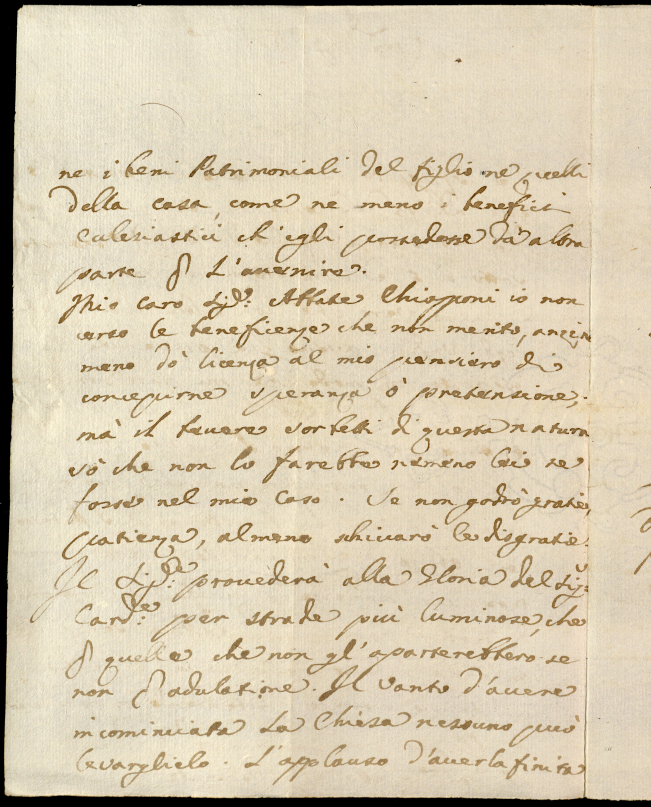 ne i beni Patrimoniali del figlio, ne quelli
della casa, come ne meno i beneficj
Eclesiastici ch'egli possedesse da altra
parte p L'auenire.
Mio caro Sig.r Abbate Chiapponi io non
cerco le beneficenze che non merito, anzi ne
meno dò licenza al mio pensiero di
concepirne speranza ò pretensione;
mà il bauere sorbetti di questa natura
sò che non lo farebbe nemeno lei se
fosse nel mio caso. Se non godrò gratie,
patienza, almeno schivarò le disgratie.
Il Sig.re provederà alla Gloria del Sig.r
Card.le per strade più luminose, che
p quelle che non gl'aporterebbero se
non p adulatione. Il vanto d'auere
incominciata La Chiesa nessuno può
levarglielo. L'applauso d'auerla finita